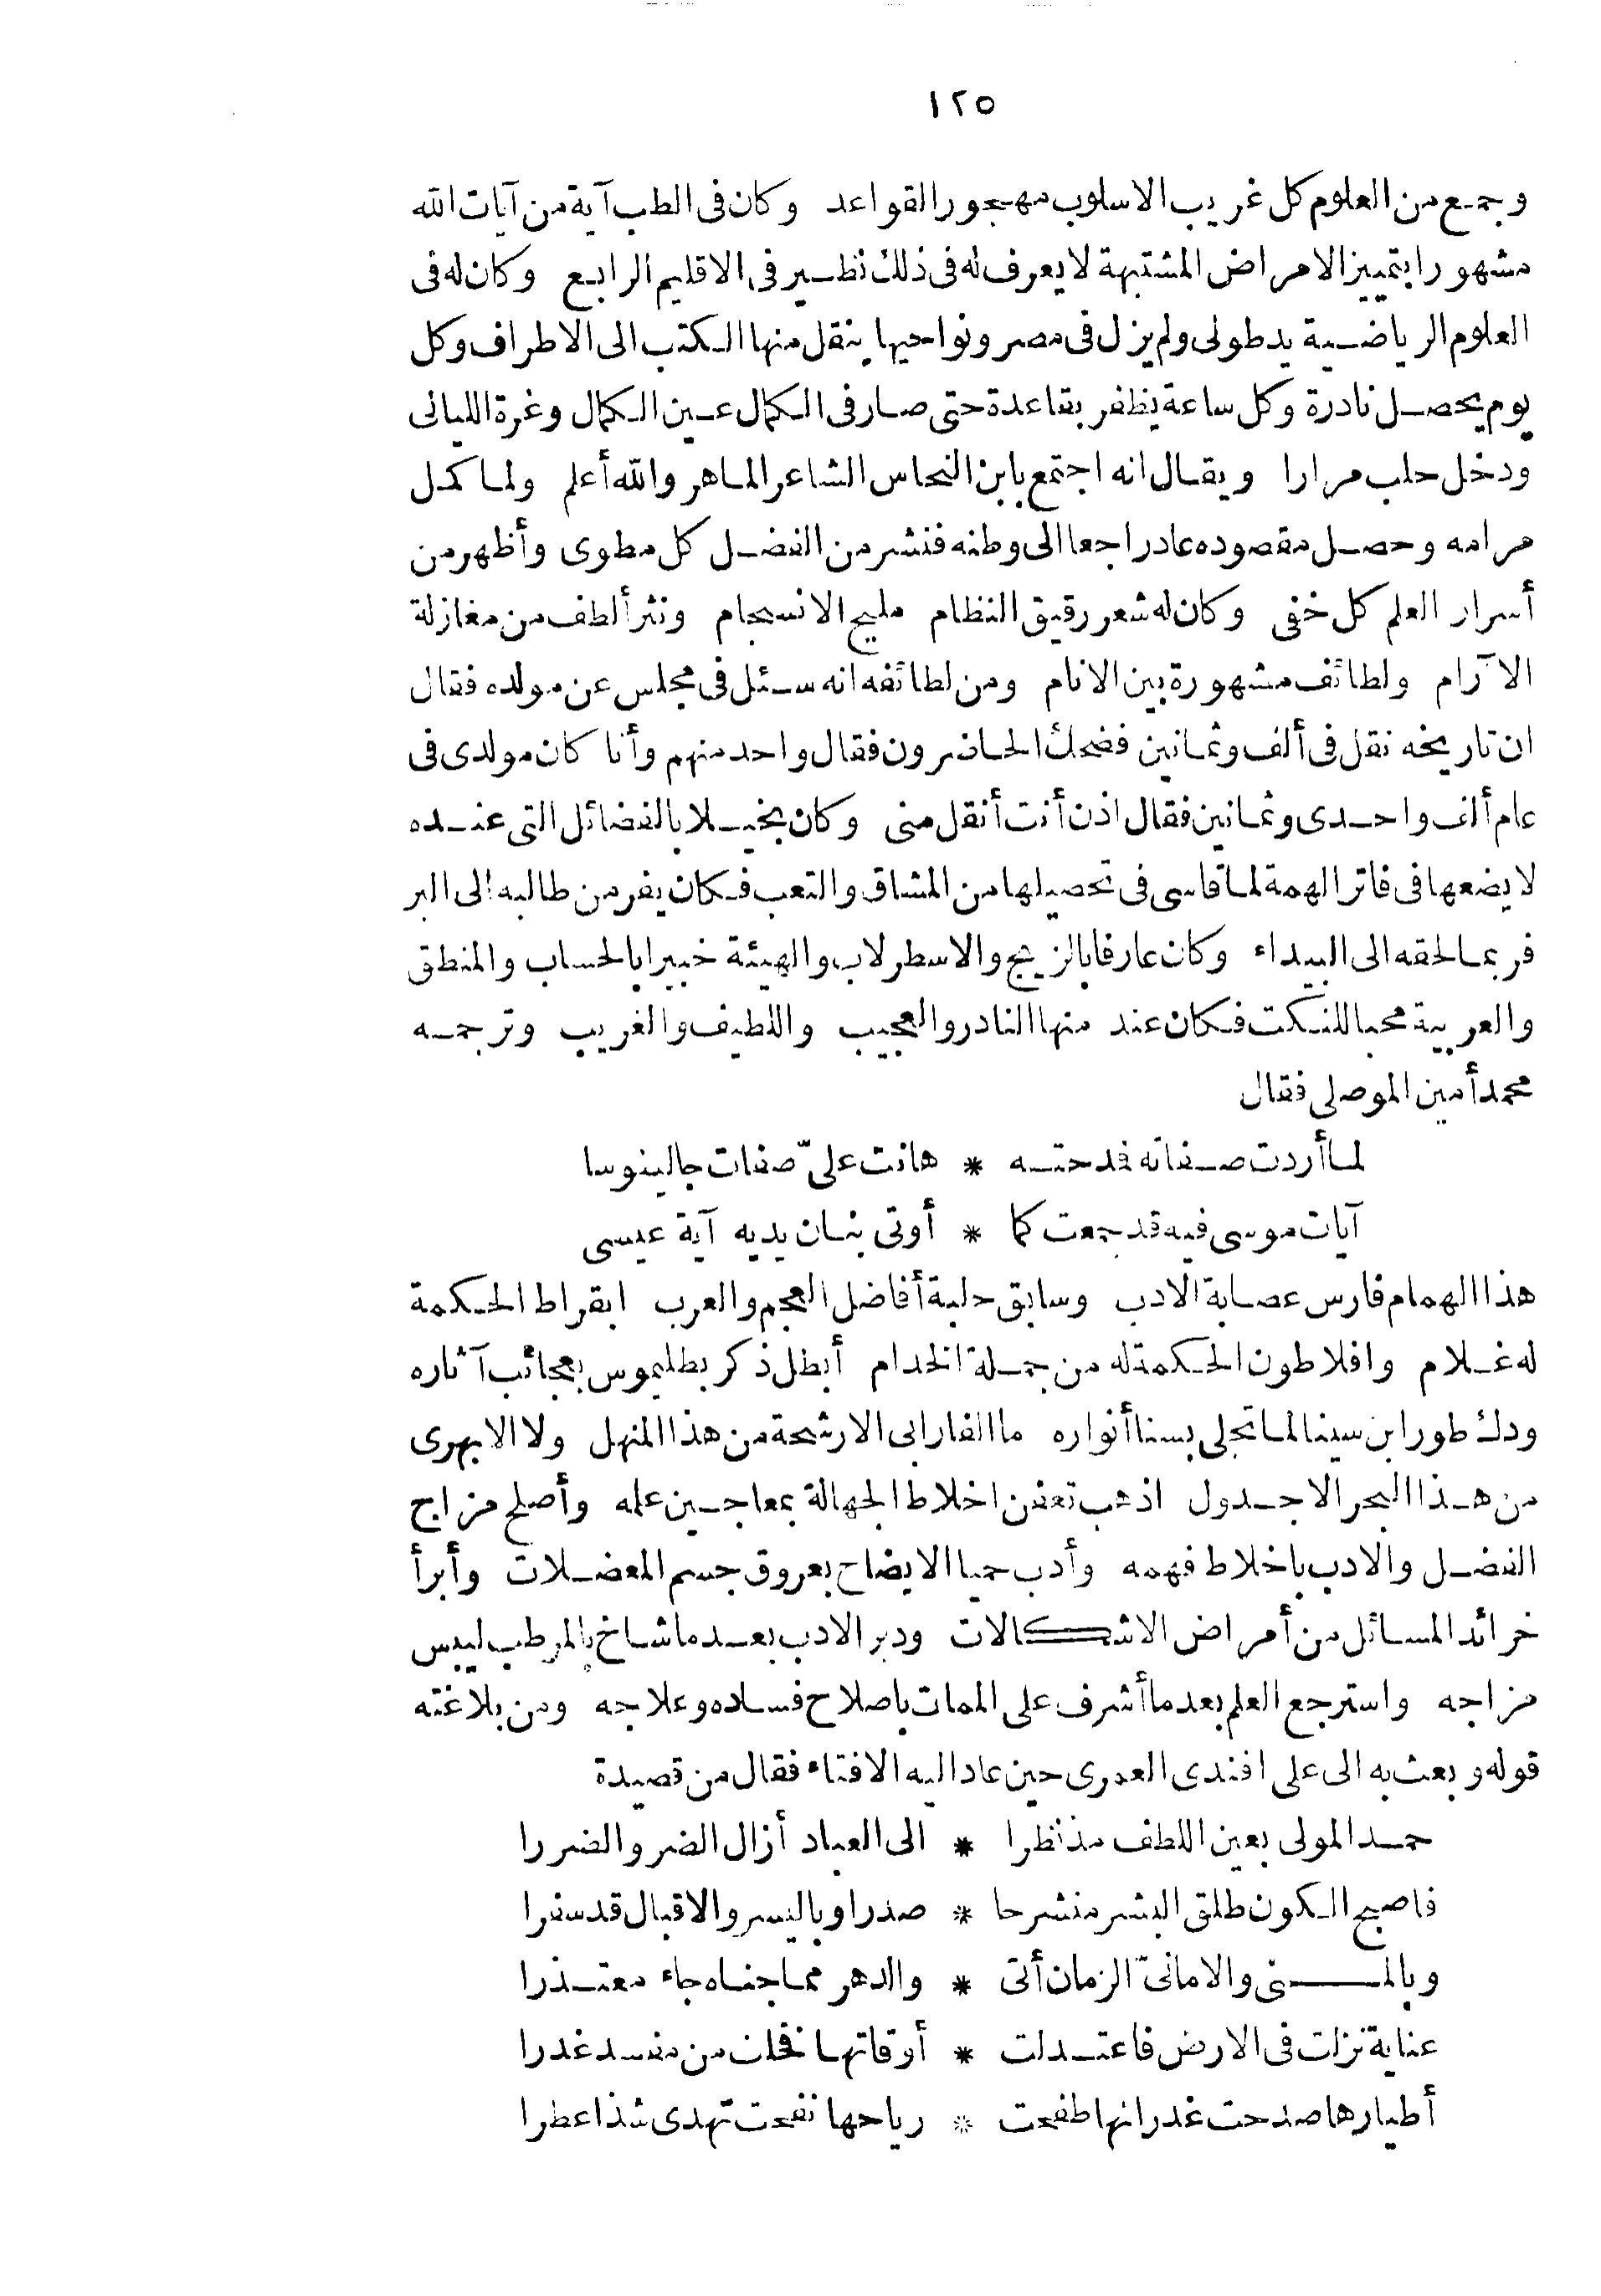 ١٢٥
وجمع من العلوم كل غريب الاسلوب مهجور القواعد وكان فى الطب آية من آيات الله
مشهورا بتمييز الامراض المشتبهة لا يعرف له فى ذلك نظير فى الاقليم الرابع وكان له فى
العلوم الرياضية يد طولى ولم يزل فى مصر ونواحيها ينقل منها الكتب الى الاطراف وكل
يوم يحصل نادرة وكل ساعة يظفر بقاعدة حتى صار فى الكمال عين الكمال وغرة الليالى
ودخل حلب مرارا ويقال انه اجتمع بابن النحاس الشاعر الماهر والله أعلم ولما كمل
مرامه وحصل مقصوده عاد راجعا الى وطنه فنشر من الفضل كل مطوى وأظهر من
أسرار العلم كل خفى وكان له شعر رقيق النظام مليح الانسجام ونثر ألطف من مغازلة
الآرام ولطائف مشهورة بين الانام ومن لطائفه انه سئل فى مجلس عن مولده فقال
ان تاريخه نقل فى ألف وثمانين فضحك الحاضرون فقال واحد منهم وأنا كان مولدى فى
عام ألف واحدى وثمانين فقال اذن أنت أنقل منى وكان بخيلا بالفضائل التى عنده
لا يضعها فى فاتر الهمة لما قاسى فى تحصيلها من المشاق والتعب فكان يفر من طالبه الى البر
فربما لحقه الى البيداء وكان عارفا بالزيج والاسطرلاب والهيئة خبيرا بالحساب والمنطق
والعربية محبا للنكت فكان عند منها النادر والعجيب واللطيف والغريب وترجمه
محمد أمين الموصلى فقال
لما أردت صفاته فدحته * هانت علىّ صفات جالينوسا
آيات موسى فيه قد جمعت كما * أوتى بنان يديه آية عيسى
هذا الهمام فارس عصابة الادب وسابق حلبة أفاضل العجم والعرب ابقراط الحكمة
له غلام وافلاطون الحكمة له من جملة الخدام أبطل ذكر بطليموس بعجائب آثاره
ودك طور ابن سينا لما تجلى بسنا أنواره ما الفارابى الا رشحة من هذا المنهل ولا الابهرى
من هذا البحر الا جدول اذهب تعفن اخلاط الجهالة بمعاجين علمه وأصلح مزاج
الفضل والادب باخلاط فهمه وأدب حميا الايضاح بعروق جسم المعضلات وأبرأ
خرائد المسائل من أمراض الاشكالات ودبر الادب بعد ما شاخ بالمرطب ليبس
مزاجه واسترجع العلم بعد ما أشرف على الممات باصلاح فساده وعلاجه ومن بلاغته
قوله وبعث به الى على افندى العمرى حين عاد اليه الافتاء فقال من قصيدة
حمد المولى بعين اللطف مذ نظرا * الى العباد أزال الضر والضررا
فاصبح الكون طلق البشر منشرحا * صدرا وباليسر والاقبال قد سفرا
وبالمنى والامانىّ الزمان أتى * والدهر مما جناه جاء معتذرا
عناية نزلت فى الارض فاعتدلت * أوقاتها فخلت من مفسد غدرا
أطيارها صدحت غدرانها طفحت * رياحها نفحت تهدى شذا عطرا